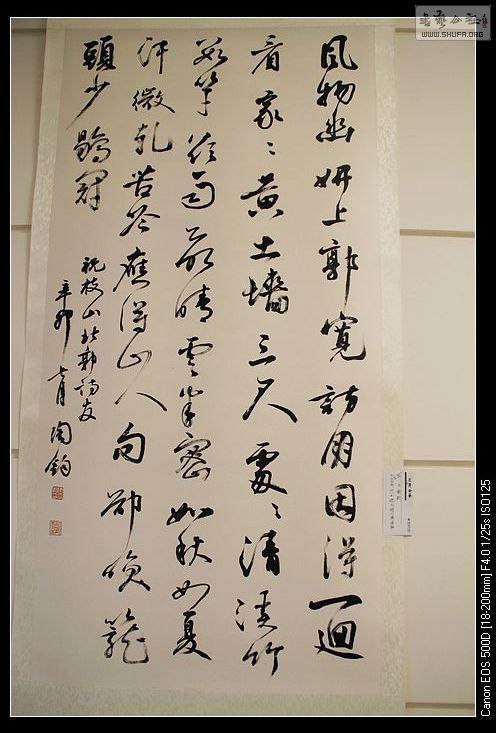 書藝公社
WWW.SHUFA.ORG
風物幽妍上郭寬訪朋因得一迴
看家〻黄土墻三尺處〻清淺竹
數竿欲雨欲晴雲半密如秋如夏
汗微乾苦吟應得山人句卻喚籠
頭少鶡冠
祝枝山北郭訪友
辛卯七月陶鈞
Canon EOS 500D [18-200mm] F4.0 1/25s ISO125